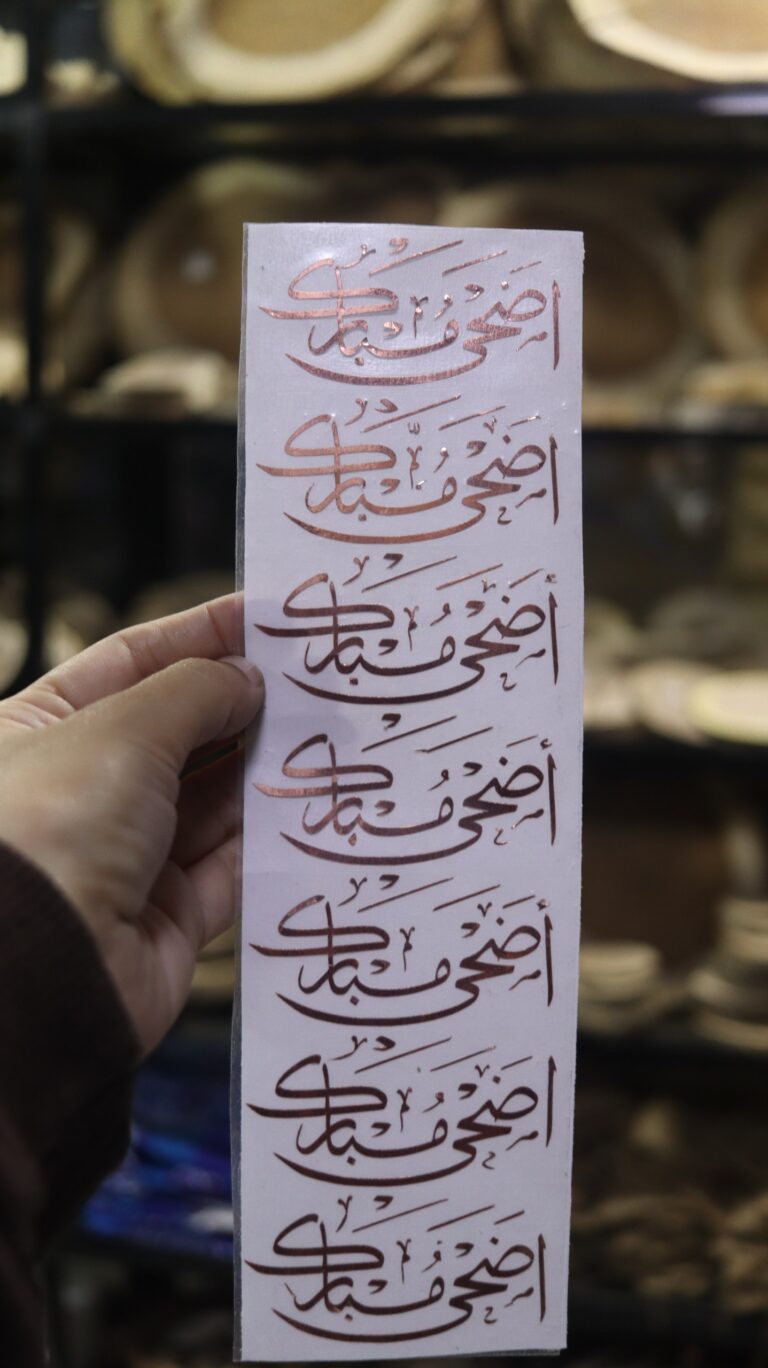 أضحى مبارك
أضحى مبارك
أضحى مبارك
أضحى مبارك
أضحى مبارك
أضحى مبارك
أضحى مبارك